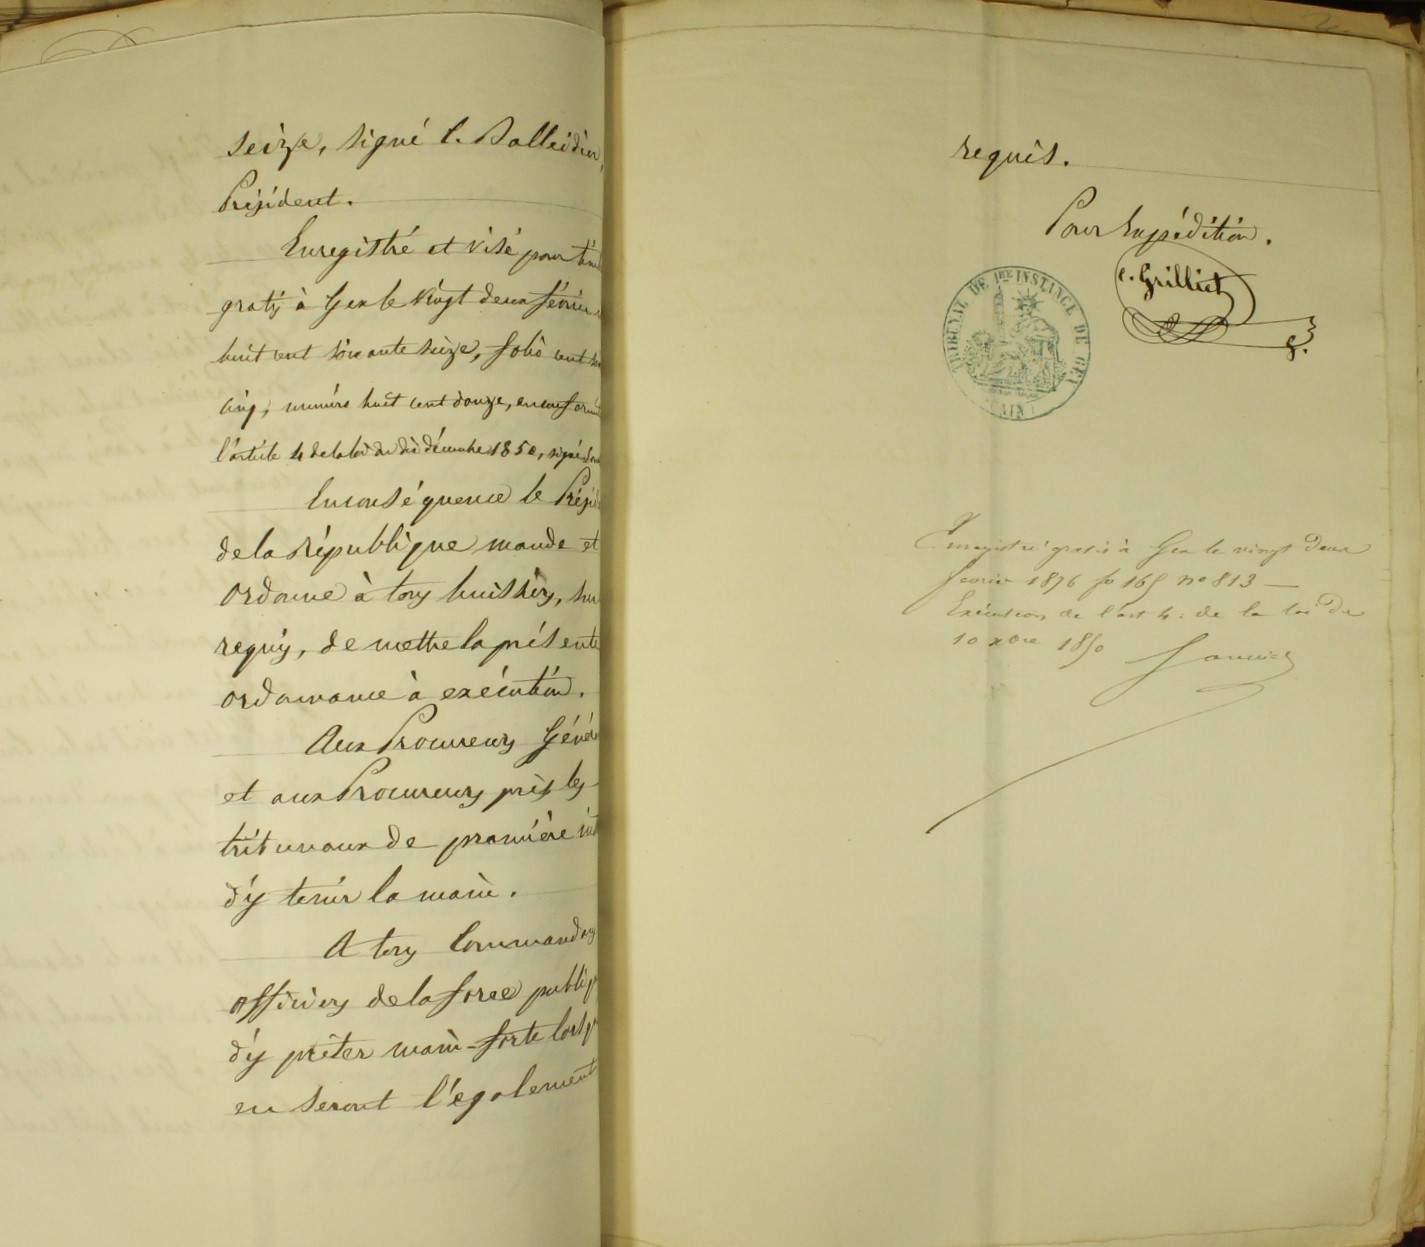 seize, signé C. Balleidier,
Président.
Enregistré et visé pour timb
gratis à Gex le vingt deux février
huit cent soixante seize, folio cent
cinq, numéro huit cent douze, en conformi
l'article 4 de la loi du dix décembre 1850, signé
En conséquence le Présid
de la République mande et
ordonne à tous huissiers, sur
requis, de mettre la présente
ordonnance à exécution.
Aux Procureurs Génér
et aux Procureurs près les
tribunaux de première inst
d'y tenir la main.
A tous Commandans
officiers de la force publiq
d'y prêter main-forte lorsq
en seront légalement
requis.
Pour Expédition.
C. Grilliet
TRIBUNAL DE 1RE INSTANCE DE GEX
(AIN)
Enregistré gratis à Gex le vingt deux
février 1876 fo 165 no 813
Exécution de l'art 4. de la loi du
10 xbre 1850